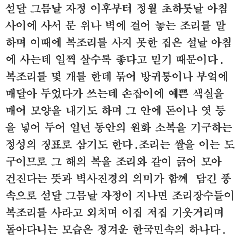 섣달 그믐날 자정 이후부터 정월 초하룻날 아침
사이에 사서 문 위나 벽에 걸어 놓는 조리를 말
하며 이때에 복조리를 사지 못한 집은 설날 아침
에 사는데 일찍 살수록 좋다고 믿기 때문이다.
복조리를 몇 개를 한데 묶어 방귀퉁이나 부엌에
매달아 두었다가 쓰는데 손잡이에 예쁜 색실을
매어 모양을 내기도 하며 그 안에 돈이나 엿 등
을 넣어 두어 일년 동안의 원화 소복을 기구하는
정성의 징표로 삼기도 한다.조리는 쌀을 이는 도
구이므로 그 해의 복을 조리와 같이 긁어 모아
건진다는 뜻과 벽사진경의 의미가 함께 담긴 풍
속으로 섣달 그믐날 자정이 지나면 조리장수들이
복조리를 사라고 외치며 이집 저집 기웃거리며
돌아다니는 모습은 정겨운 한국민속의 하나다.